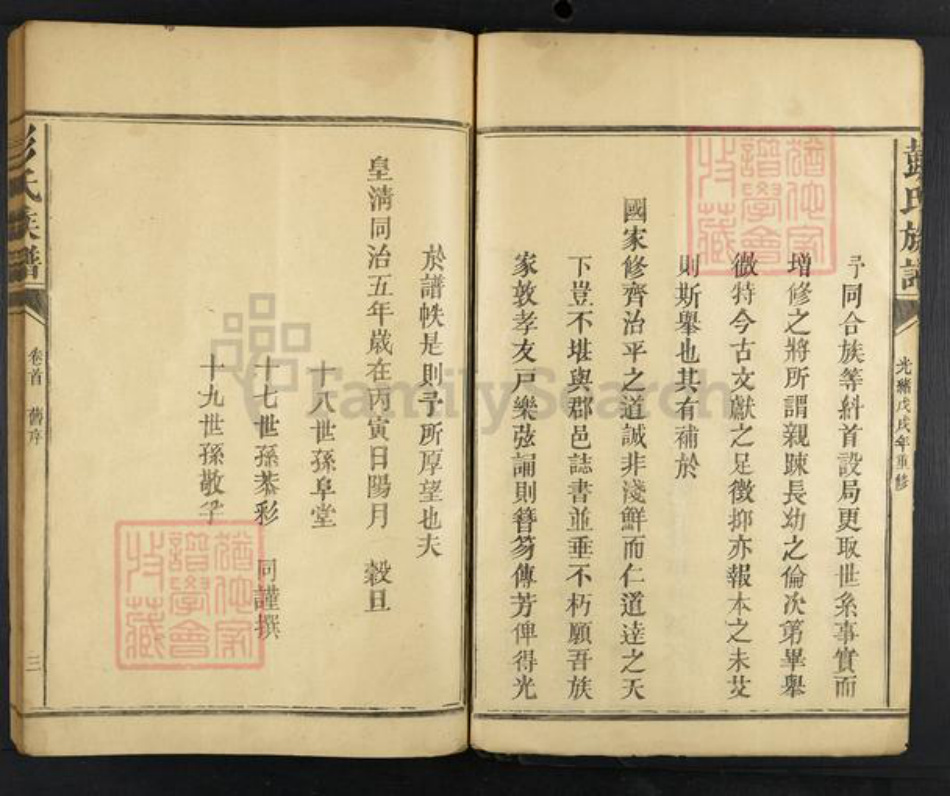 彭氏族譜
光緒戊戌年重修
予同合族等糾首設局更取世系事實而
增修之將所謂親踈長幼之倫次第畢舉
徵特今古文獻之足徵抑亦報本之未艾
則斯舉也其有補於
國家修齊治平之道誠非淺鮮而仁道達之天
下豈不堪與郡邑誌書並垂不朽願吾族
家敦孝友戸樂弦誦則簪笏傳芳俾得光
於譜帙是則予所厚望也夫
皇淸同治五年歲在丙寅日陽月 穀旦
十八世孫阜堂
十七世孫恭彩 同謹撰
十九世孫敬孚
彭氏族譜
卷首 舊序
三
猶他家
譜學會
收藏
猶他家
譜學會
收藏
FamilySearch